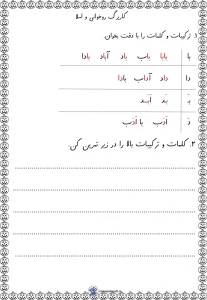 کاربرگ روخوانی و املا
۱. ترکیبات و کلمات را با دقت بخوان.
با بابا باب باد آباد بادا
دا داد آداب بادا
بَـ بَد اَبَد
دَ اَدَب با اَدَب
۲. کلمات و ترکیبات بالا را در زیر تمرین کن.